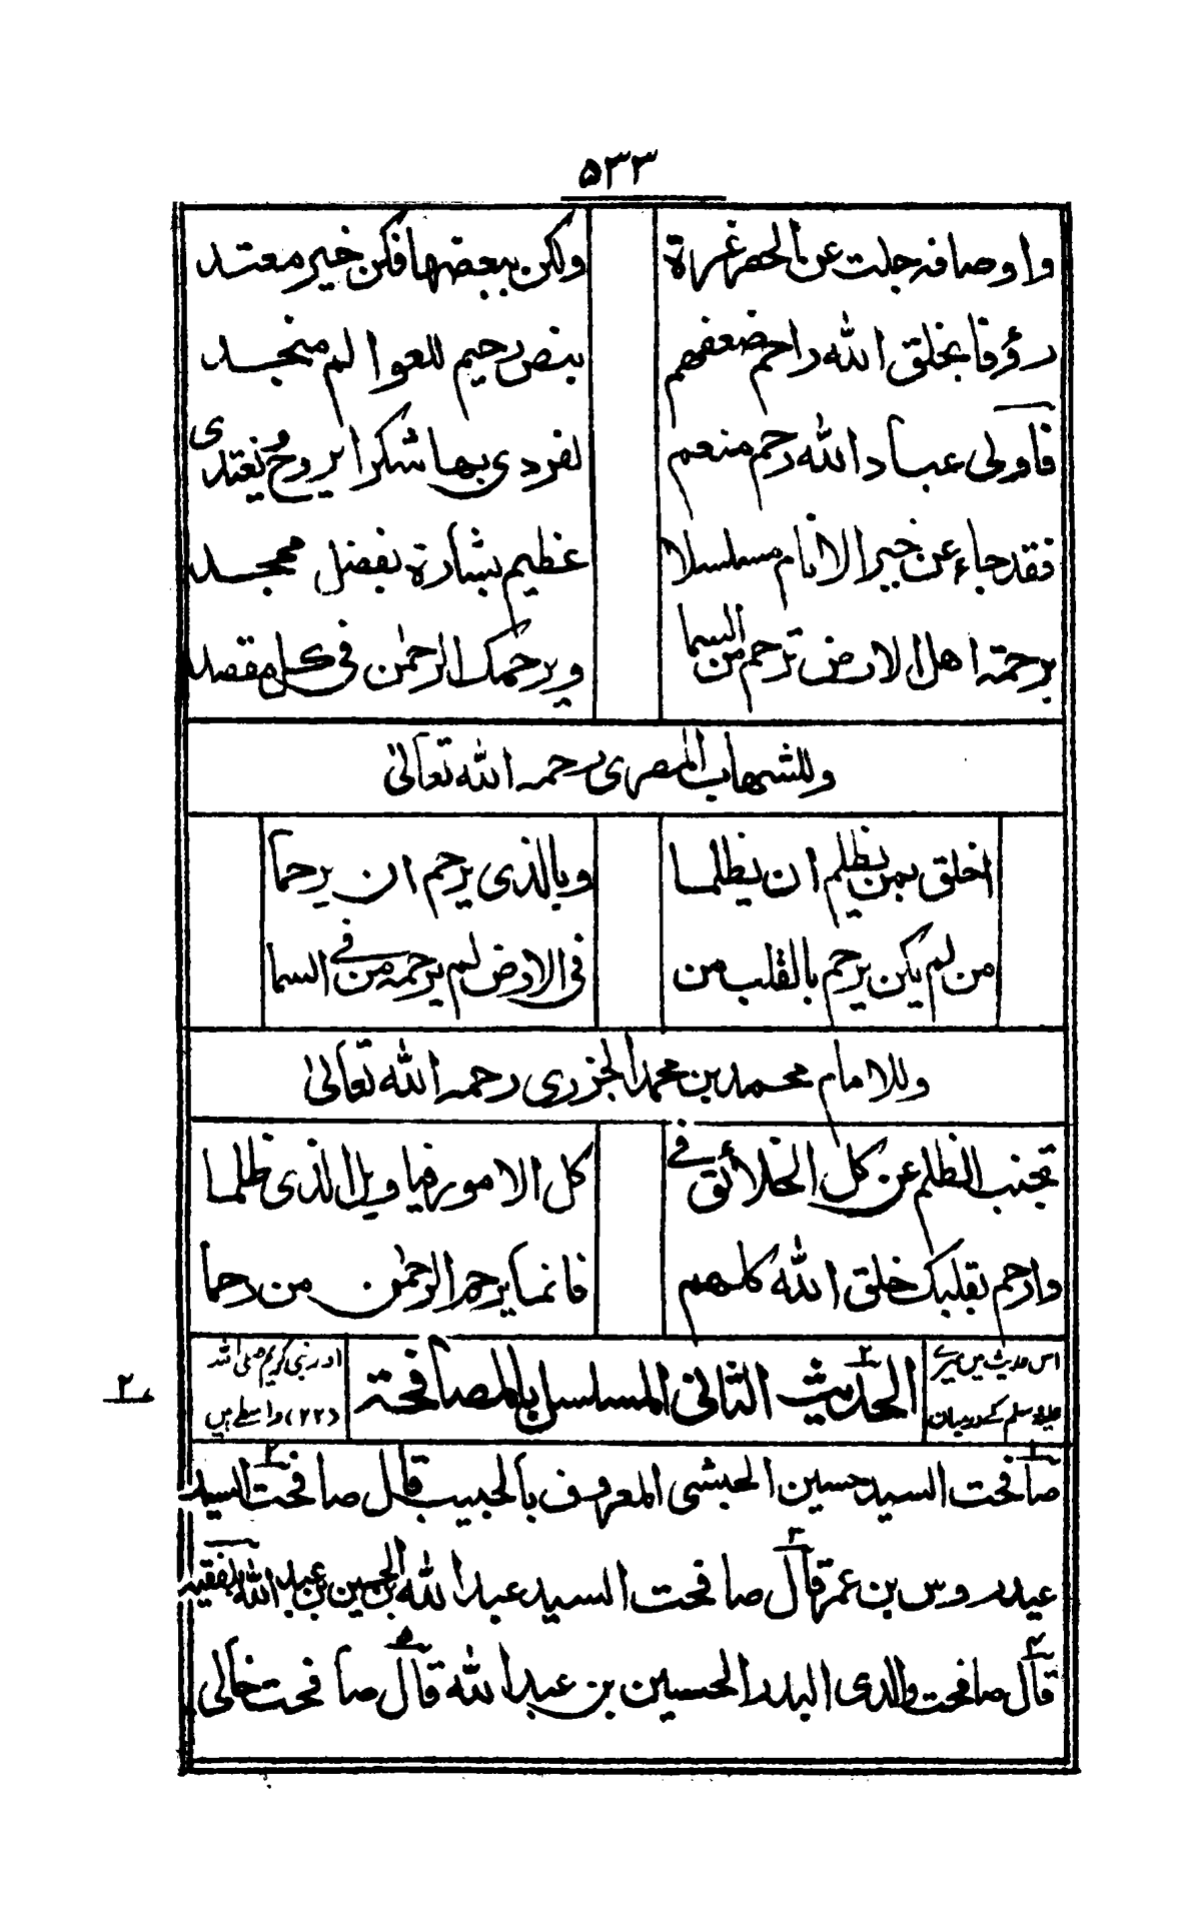 ۵۳۳
واوصافه جلت عن الحصر غرزة ولكن ببعضها فكن خير معتد
رؤفا بخلق الله راحم ضعفهم بنص رحيم للعوالم منجد
فاولى عباد الله رحم منعم لفردى بها شكرا يروح نعتدى
فقد جاء عن خير الانام مسلسلا عظيم بشارة بفضل ممجد
برحمة اهل الارض ترحم من السما ويرحمك الرحمٰن فى كل مقصد
وللشهاب المصرى رحمه الله تعالىٰ
اخلق بمن يظلم ان يظلما وبالذى يرحم ان يرحما
من لم يكن يرحم بالقلب من فى الارض لم يرحمه من فى السما
وللامام محمد بن محمد الجزرى رحمه الله تعالىٰ
تجنب الظلم عن كل الخلائق فى كل الامور فيا ويل الذى ظلما
وارحم بقلبك خلق الله كلهم فانما يرحم الرحمٰن من رحما
اس حدیث میں میرے
علیہ وسلم کے درمیان
الحديث الثانى المسلسل بالمصافحة
اور نبی کریم صلی اللہ
(۲۲) واسطے ہیں
۲
صافحت السيد حسين الحبشى المعروف بالحبيب قال صافحت السيد
عيدروس بن عمر قال صافحت السيد عبد الله بن الحسين بن عبد الله بلفقيه
قال صافحت والدى البدر الحسين بن عبد الله قال صافحت خالى